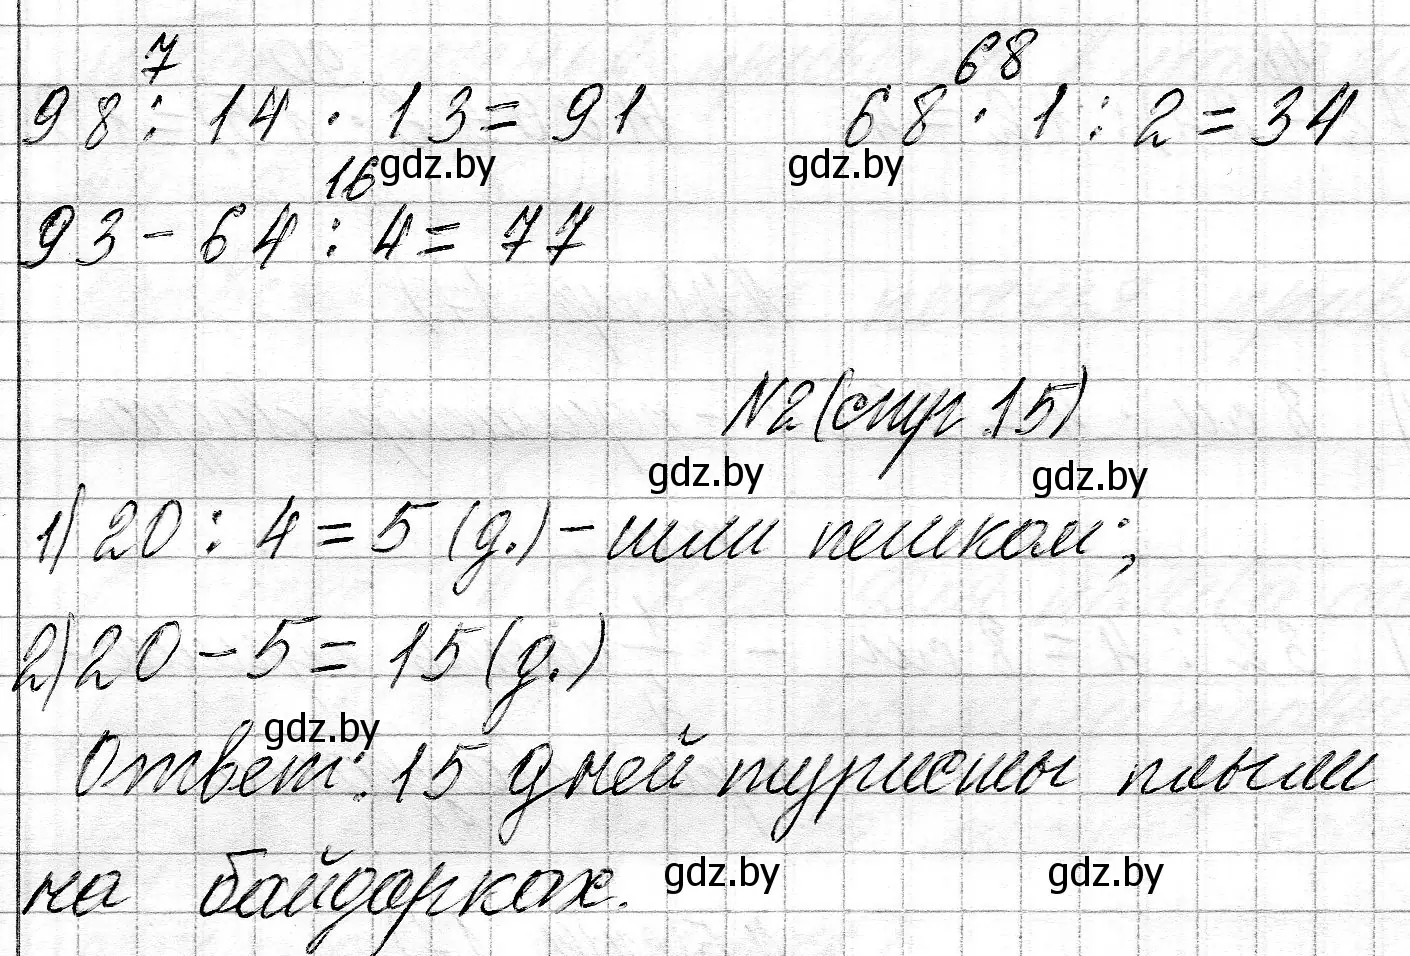 7 68
98 : 14 · 13 = 91 68 · 1 : 2 = 34
gdz.by gdz.by
16
93 - 64 : 4 = 77
N2 (стр. 15)
gdz.by gdz.by
1) 20 : 4 = 5 (д.) - шли пешком;
2) 20 - 5 = 15 (д.)
gdz.by
Ответ: 15 дней туристы плыли
на байдарках.
gdz.by gdz.by